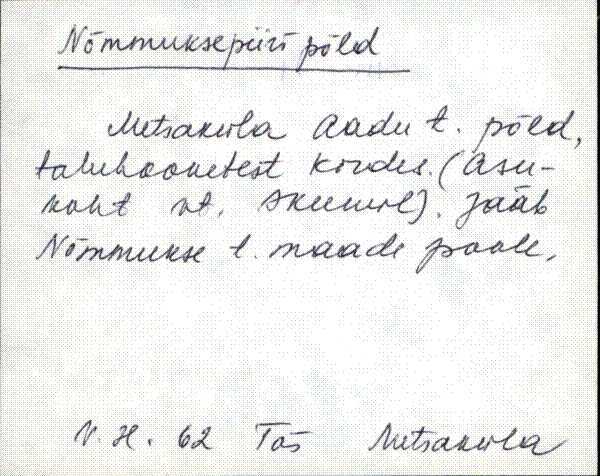 Nõmmuksepiiri põld
Metsaküla Aadu t. põld,
taluhoonetest kirdes. (Asu-
koht vt. skeemil). Jääb
Nõmmukse t. maade poole.
V. H. 62 Tõs Metsaküla